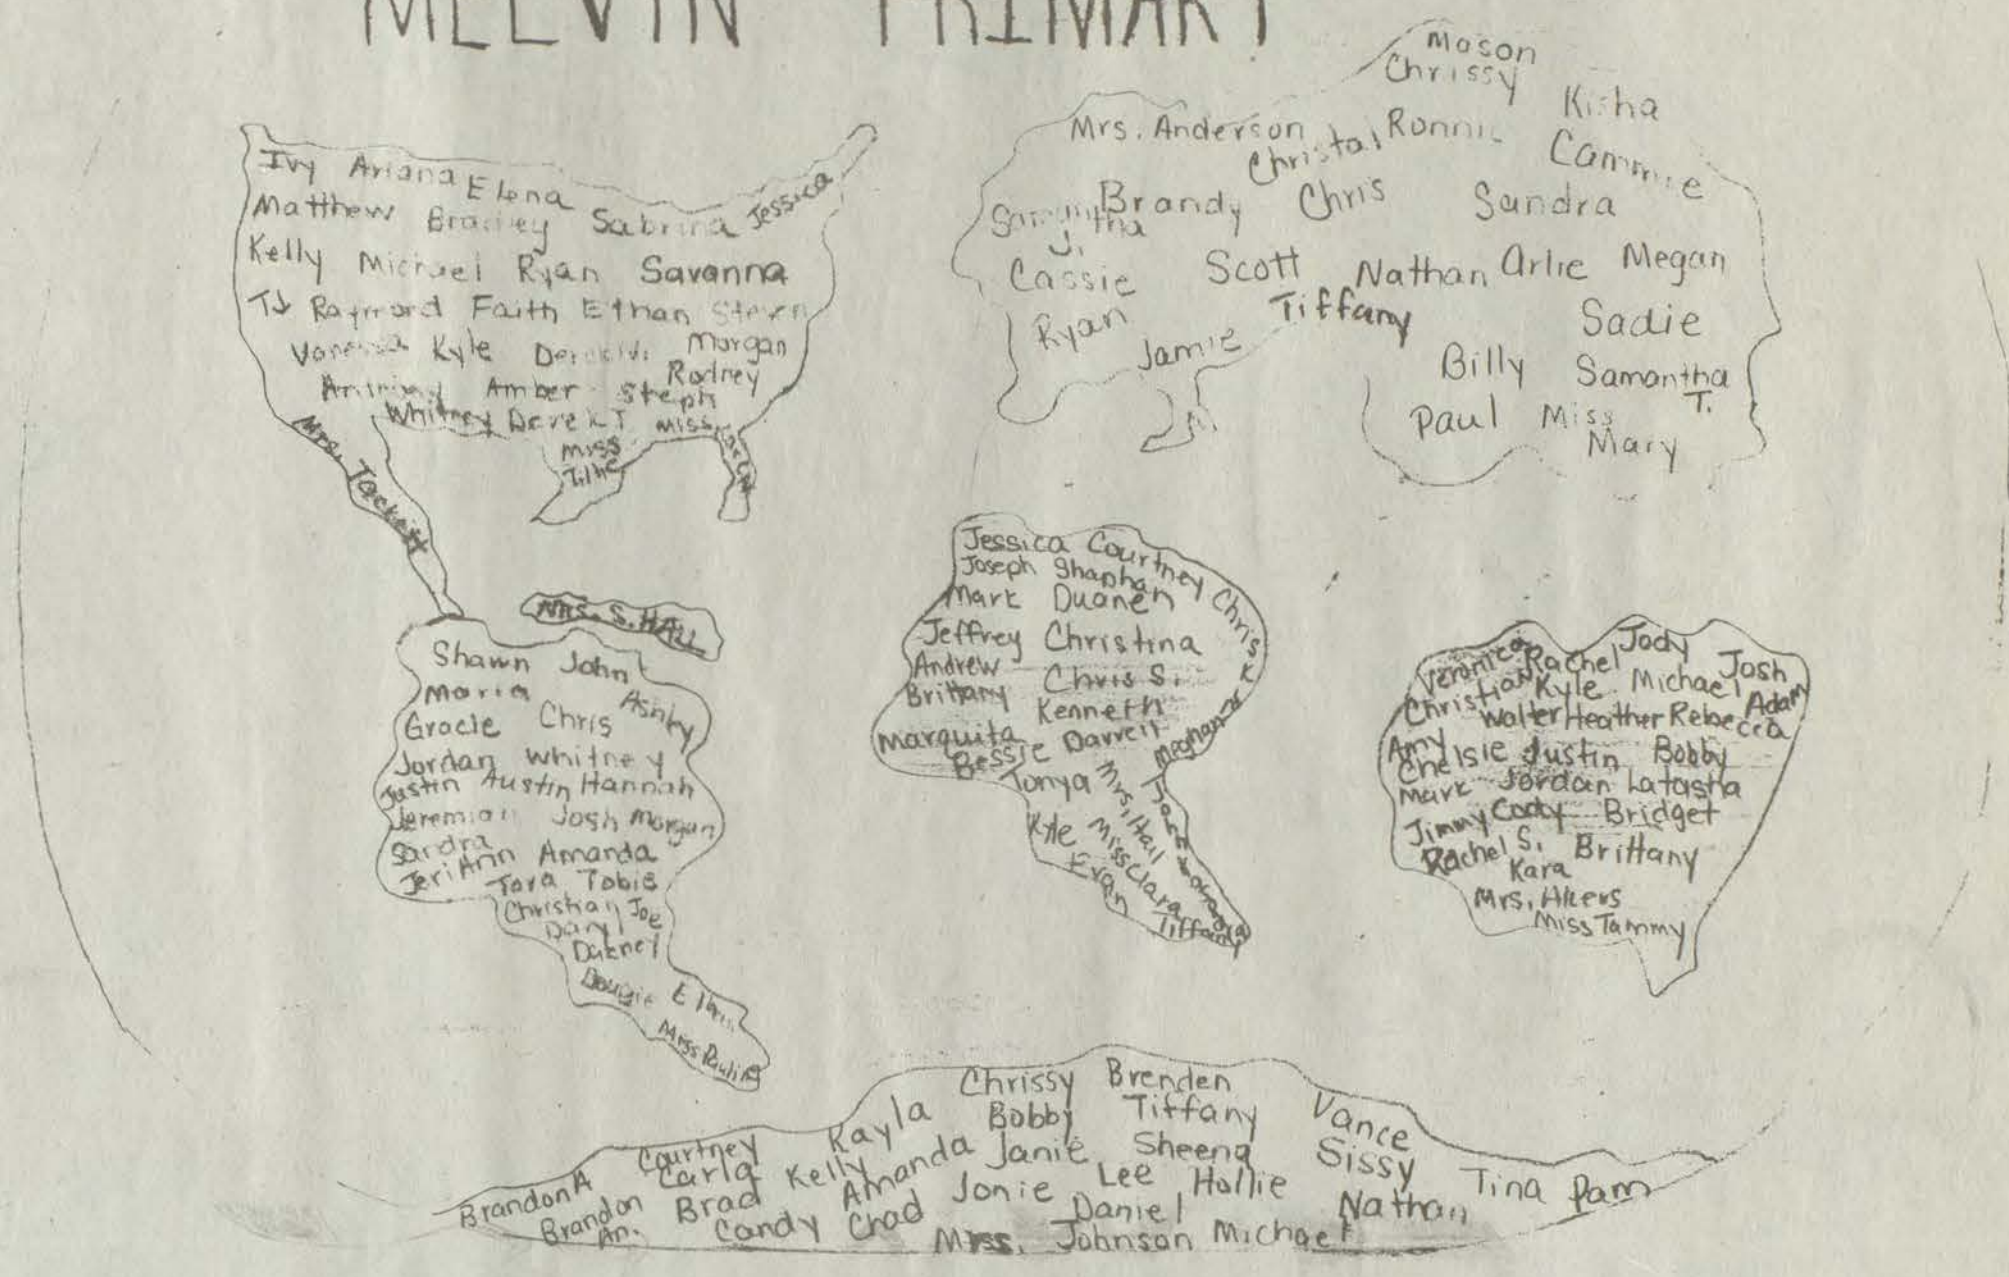 MELVIN PRIMARY
Ivy Ariana Elena
Matthew Bradley Sabrina Jessica
Kelly Michael Ryan Savanna
TJ Raymond Faith Ethan Steven
Vanessa Kyle Derek W. Morgan
Anthony Amber Steph Rodney
Whitney Derek T Miss
Miss
Mrs. Jackett
Mrs. S. HALL
Mason
Chrissy
Kisha
Mrs. Anderson Christal Ronnie Cammie
Samantha J. Brandy Chris Sandra
Cassie Scott Nathan Arlie Megan
Ryan Jamie Tiffany Sadie
Billy Samantha T.
Paul Miss Mary
Shawn John
Maria Ashley
Gracie Chris
Jordan Whitney
Justin Austin Hannah
Jeremiah Josh Morgan
Sandra
Jeri Ann Amanda
Tara Tobie
Christian Joe
Daryl
Dougie
Miss Pauline
Jessica Courtney
Joseph
Mark Duanen Chris K.
Jeffrey Christina
Andrew Chris S.
Brittany Kenneth
Marquita Darrell Meghan
Bessie
Tonya Mrs. Hall
Kyle Miss Clara
Evan Tiffany
Veronica Rachel Jody Josh
Christian Kyle Michael Adam
Walter Heather Rebecca
Amy
Chelsie Justin Bobby
Mark Jordan Latasha
Jimmy Cody Bridget
Rachel S. Brittany
Kara
Mrs. Akers
Miss Tammy
Chrissy Brenden
Kayla Bobby Tiffany Vance
Courtney Carla Kelly Amanda Janie Sheena Sissy
Brandon A Brandon An. Brad Jonie Lee Hollie Tina Pam
Candy Chad Daniel Nathan
Johnson Michael